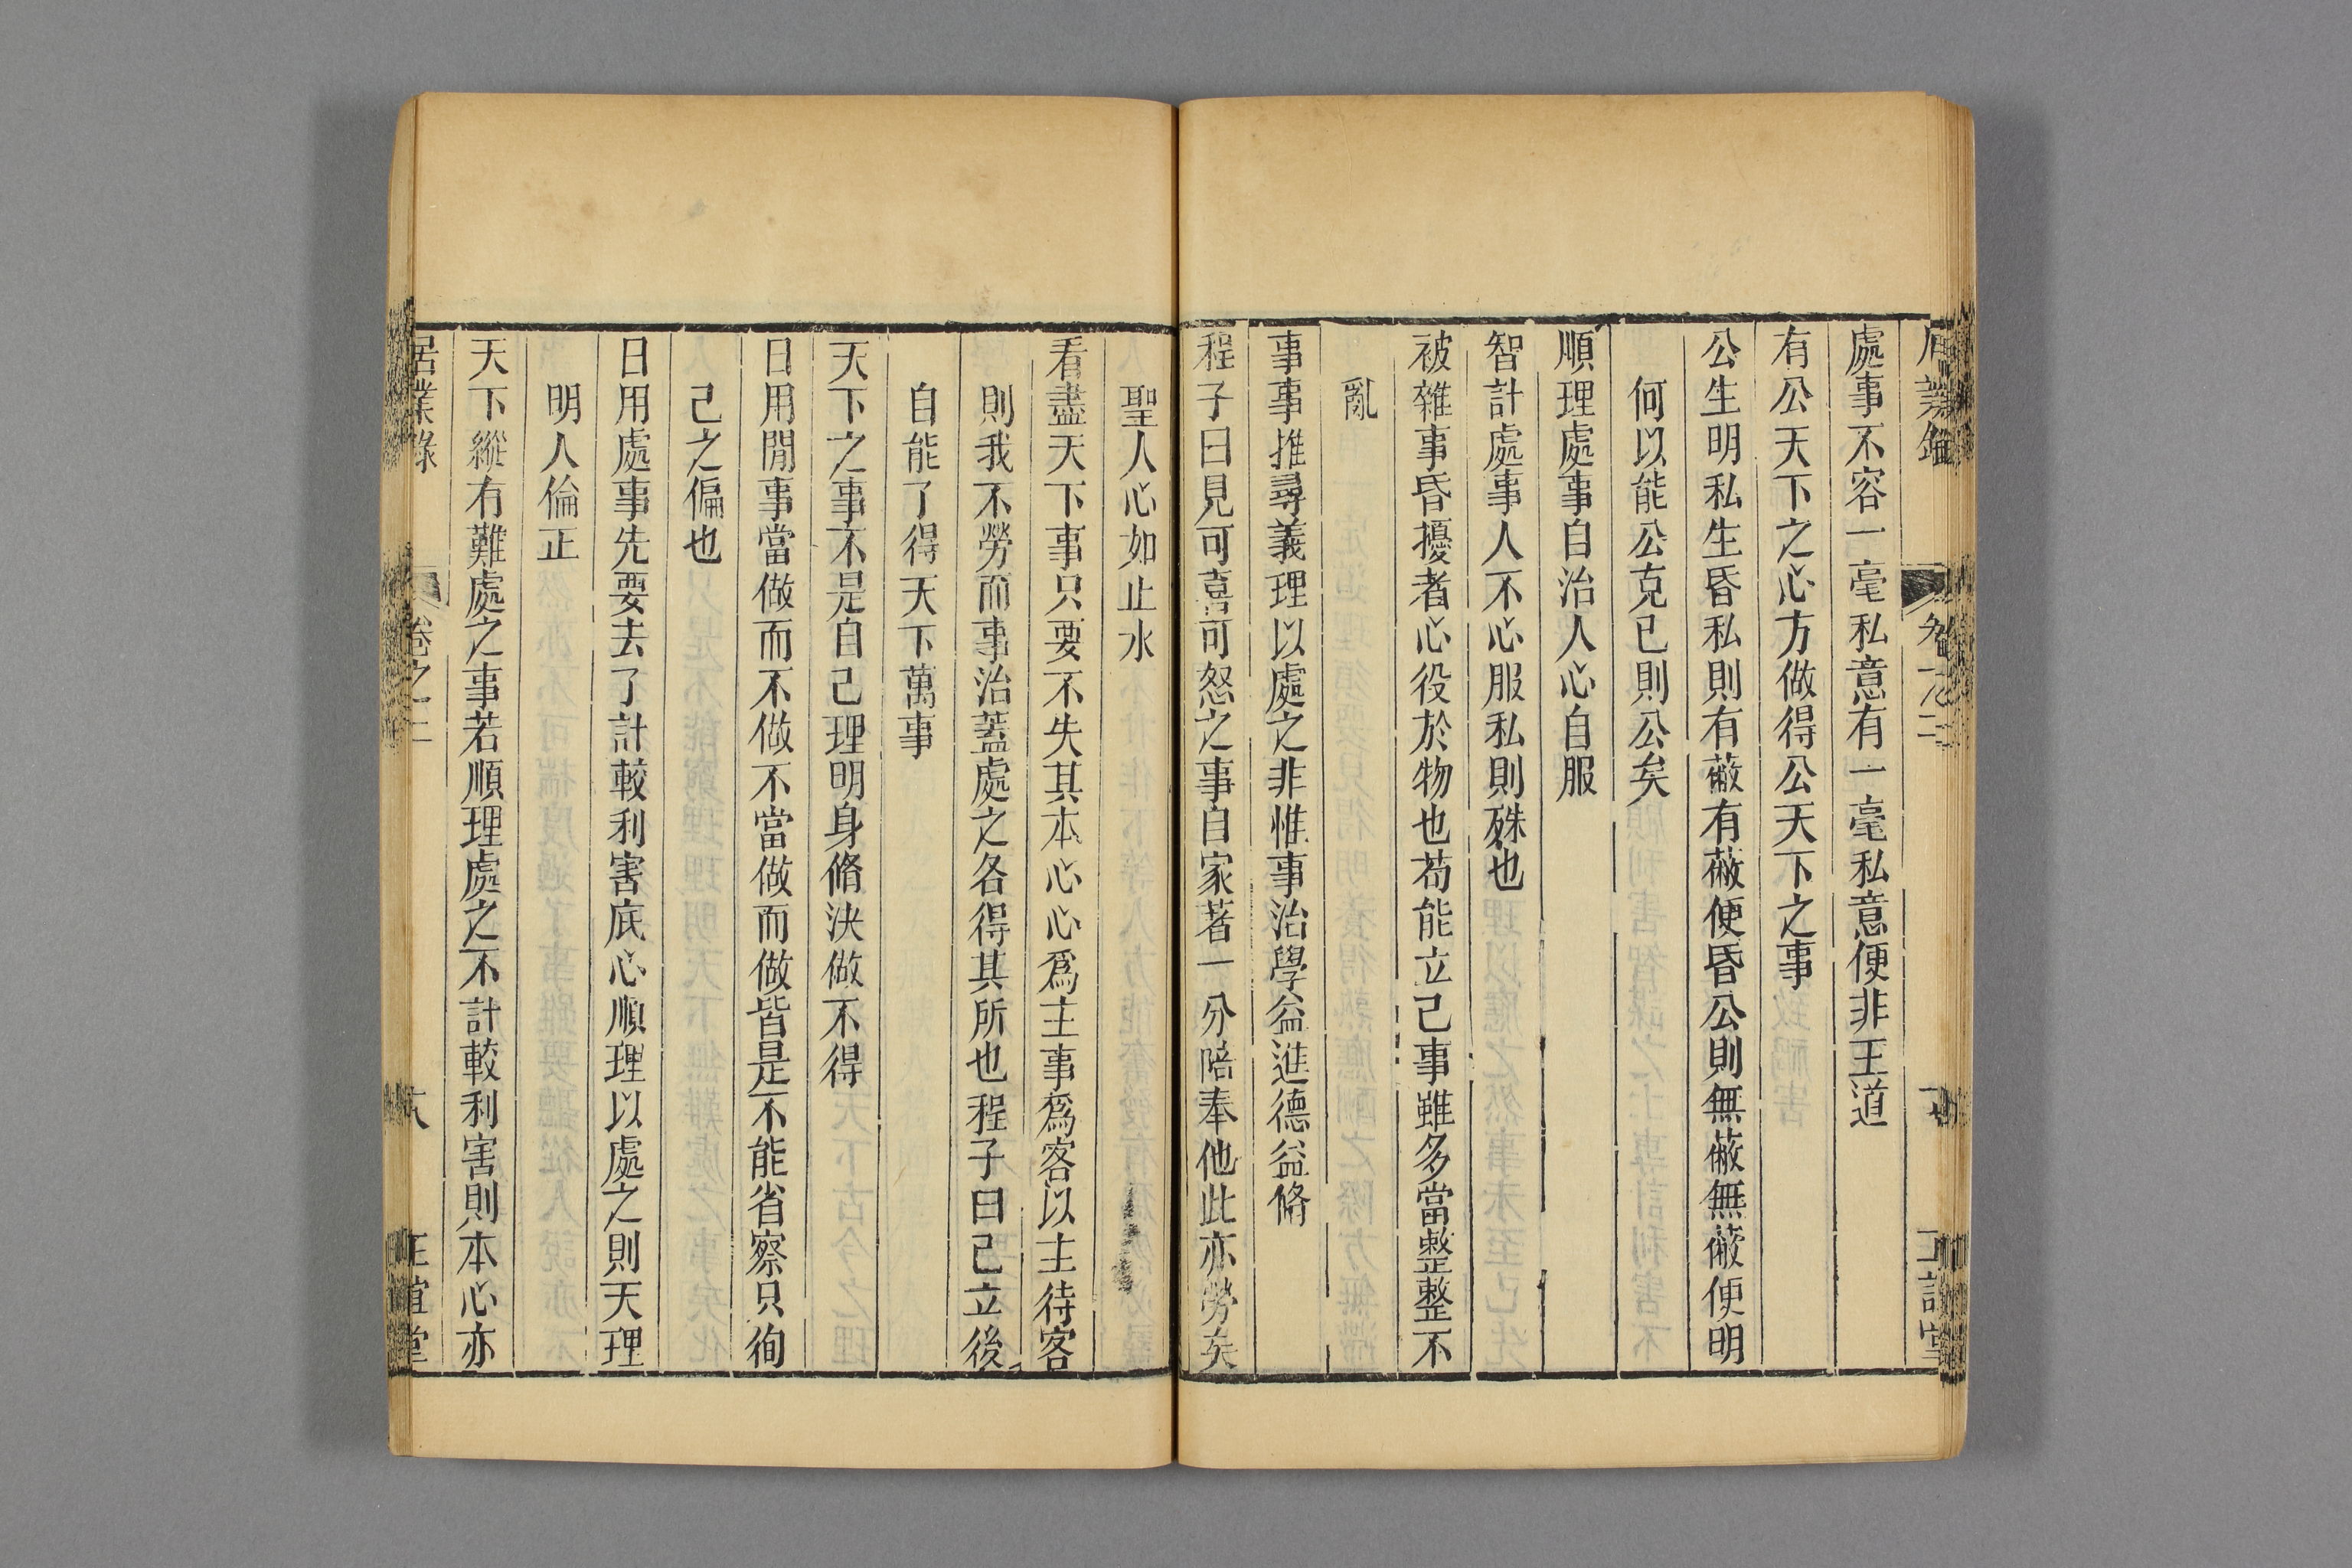 處事不容一毫私意有一毫私意便非王道
有公天下之心方做得公天下之事
公生明私生昏私則有蔽有蔽便昏公則無蔽無蔽便明
何以能公克己則公矣
順理處事自治人心自服
智計處事人不心服私則殊也
被雜事昏擾者心役於物也苟能立己事雖多當整整不
亂
事事推尋義理以處之非惟事治學益進德益脩
程子曰見可喜可怒之事自家著一分陪奉他此亦勞矣
聖人心如止水
看盡天下事只要不失其本心心爲主事爲客以主待客
則我不勞而事治蓋處之各得其所也程子曰己立後
自能了得天下萬事
天下之事不是自己理明身脩決做不得
日用閒事當做而不做不當做而做皆是不能省察只徇
己之偏也
日用處事先要去了計較利害底心順理以處之則天理
明人倫正
天下縱有難處之事若順理處之不計較利害則本心亦
居業錄
卷之二
八
正誼堂